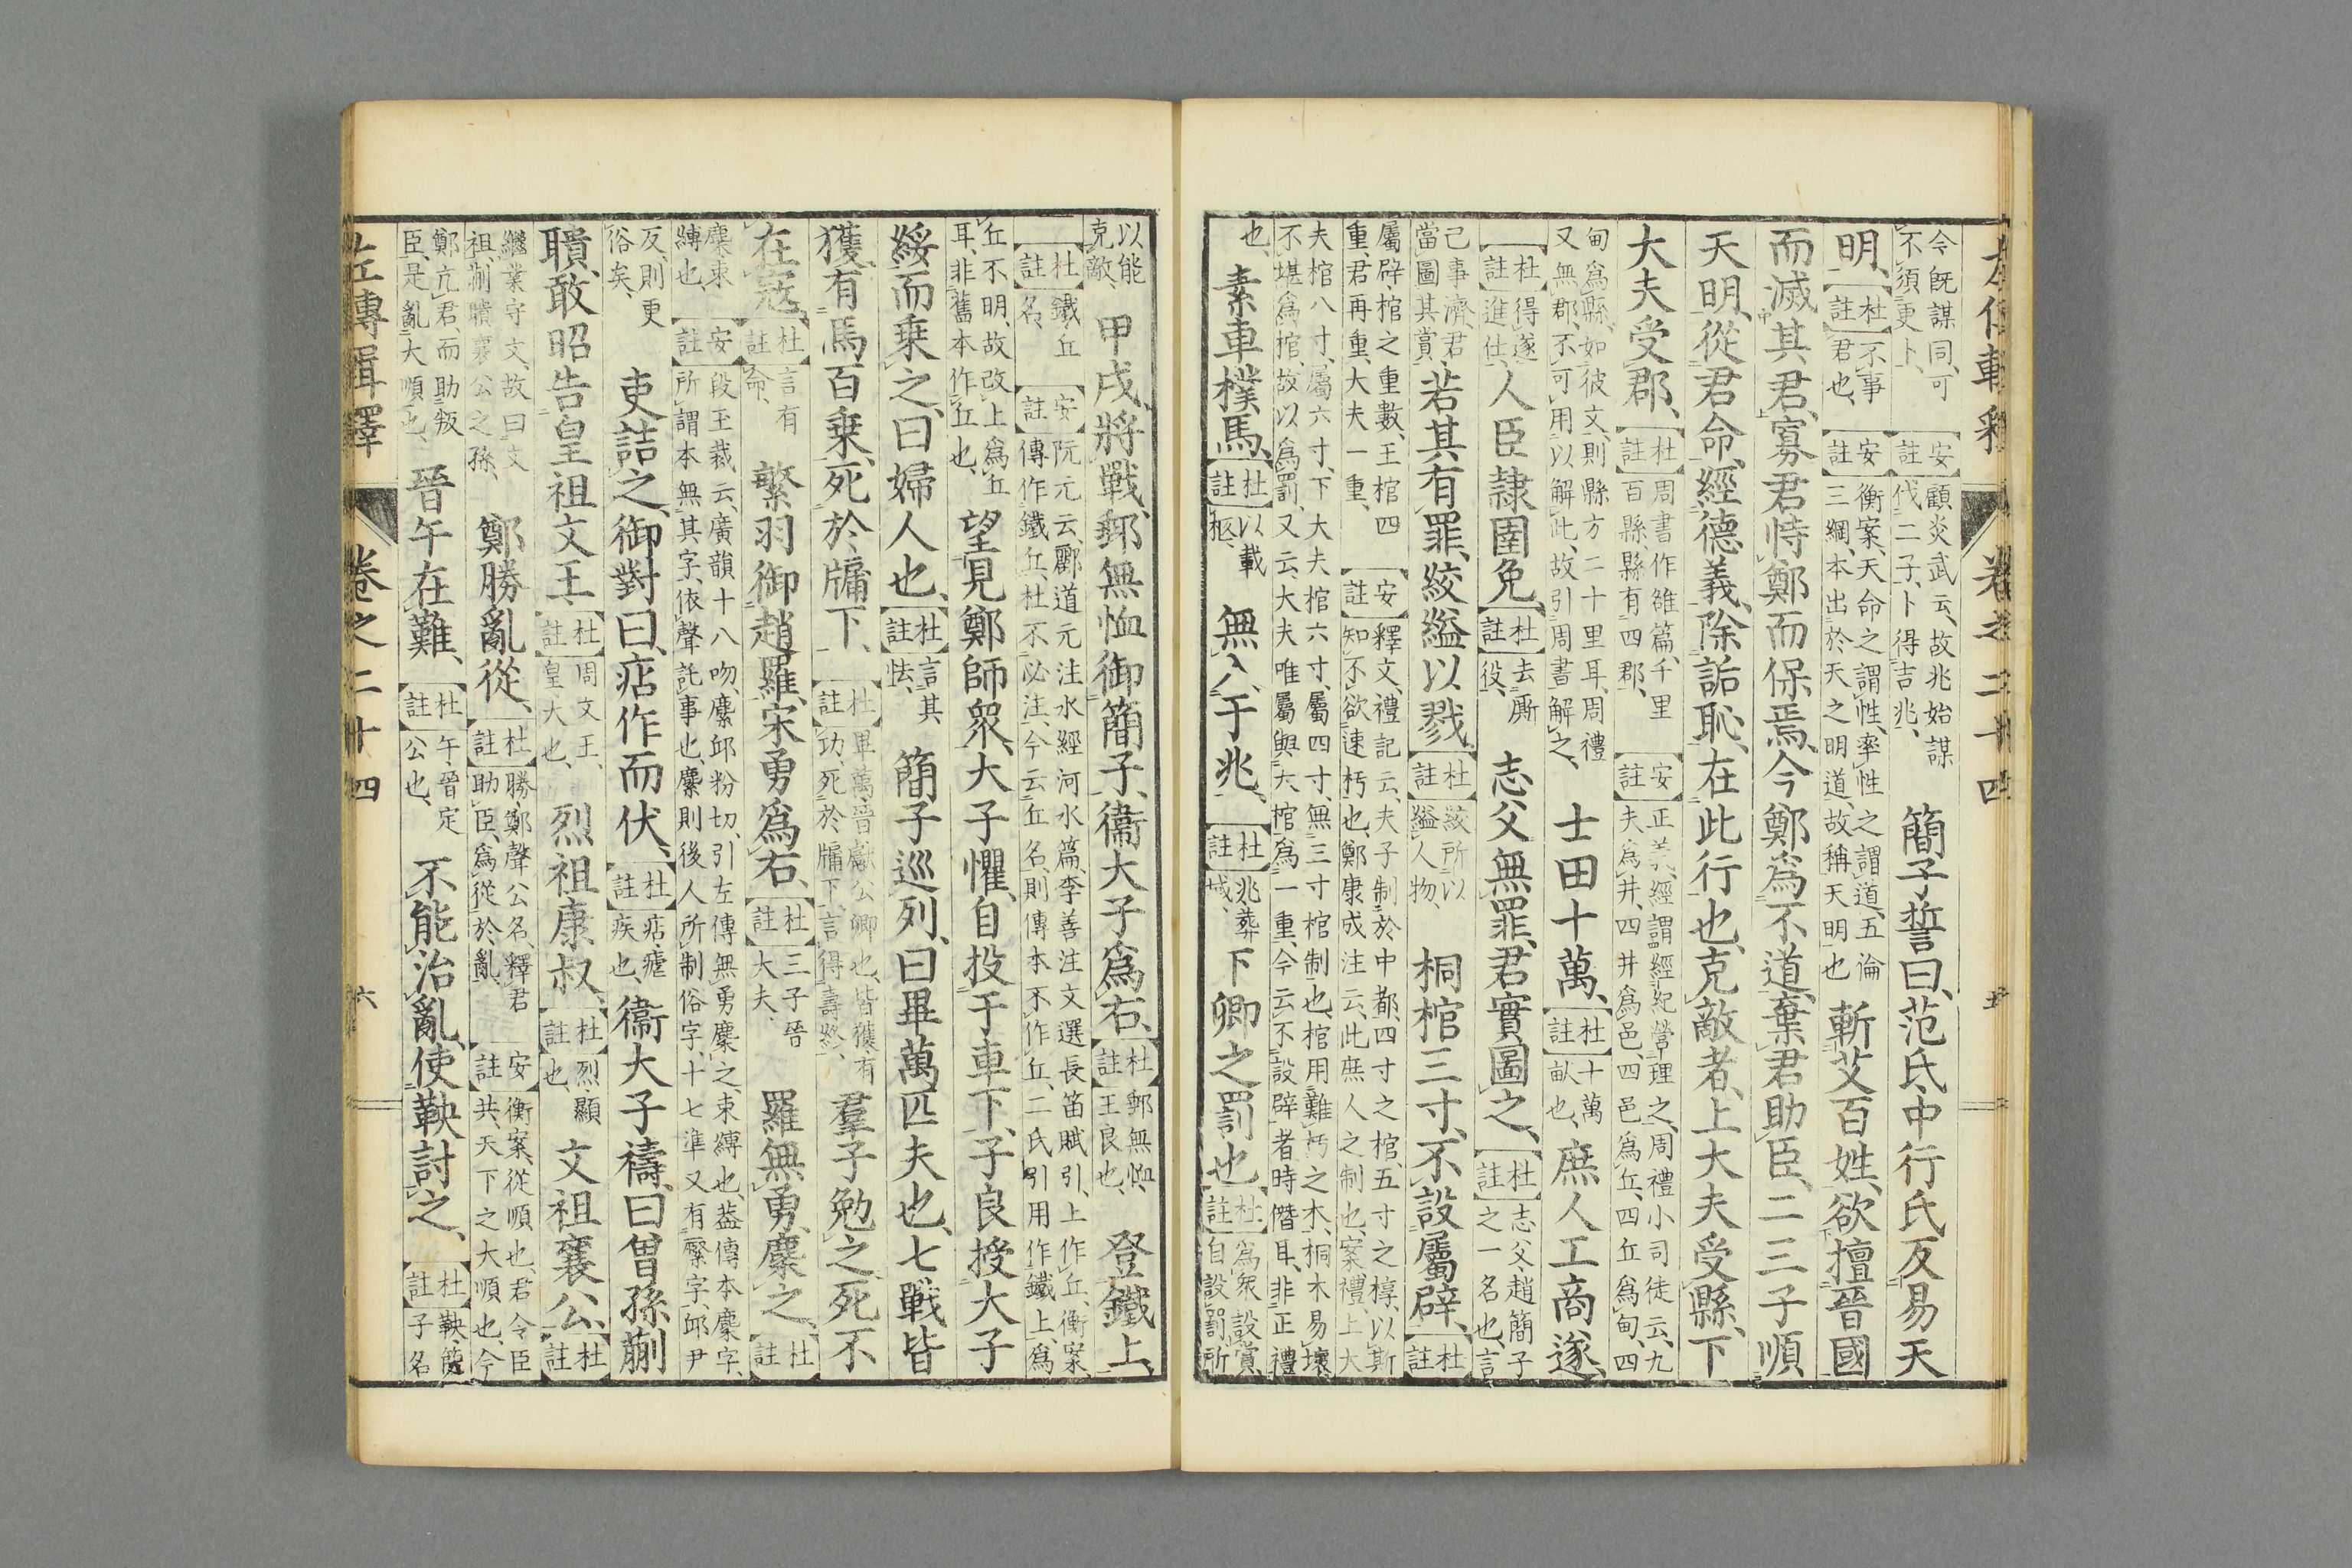 左傳輯釋 卷之二十四 五
今既謀同可不須更卜、安註顧炎武云、故兆始謀代二子、卜得吉兆、簡子誓曰、范氏中行氏反易天
明、杜註不事君也、安註衡案、天命之謂性、率性之謂道、五倫三綱、本出於天之明道、故稱天明也斬艾百姓、欲擅晉國
而滅其君、寡君恃鄭而保焉、今鄭爲不道、棄君助臣、二三子順
天明、從君命、經德義、除詬恥、在此行也、克敵者、上大夫受縣、下
大夫受郡、杜註周書作雒篇、千里百縣、縣有四郡、安註正義、經謂經紀營理之、周禮小司徒云、九夫爲井、四井爲邑、四邑爲丘、四丘爲甸、四
甸爲縣、如彼文、則縣方二十里耳、周禮又無郡、不可用以解此、故引周書解之、士田十萬、杜註十萬畝也、庶人工商遂、
杜註得遂進仕、人臣隸圉免、杜註去厮役、志父無罪、君實圖之、杜註志父、趙簡子之一名也、言
己事濟、君當圖其賞、若其有罪、絞縊以戮、杜註絞所以縊人物、桐棺三寸、不設屬辟、杜註
屬辟、棺之重數、王棺四重、君再重、大夫一重、安註釋文、禮記云、夫子制於中都、四寸之棺、五寸之椁、以斯知不欲速朽也、鄭康成注云、此庶人之制也、案禮、上大
夫棺八寸、屬六寸、下大夫棺六寸、屬四寸、無三寸棺制也、棺用難朽之木、桐木易壞不堪爲棺、故以爲罰、又云、大夫唯屬與大棺爲一重、今云不設辟者、時僭耳、非正禮
也、素車樸馬、杜註以載柩、無入于兆、杜註兆葬域、下卿之罰也、杜註爲衆設賞、自設罰、所
以能克敵、甲戌、將戰、郵無恤御簡子、衞大子爲右、杜註郵無恤、王良也、登鐵上、
杜註鐵丘名、安註阮元云、酈道元注水經河水篇、李善注文選長笛賦引、上作丘、衡案、傳作鐵丘、杜不必注、今云丘名、則傳本不作丘、二氏引用作鐵上、爲
丘不明、故改上爲丘耳、非舊本作丘也、望見鄭師衆、大子懼、自投于車下、子良授大子
綏而乗之、曰婦人也、杜註言其怯、簡子巡列、曰畢萬匹夫也、七戰皆
獲、有馬百乗、死於牖下、杜註畢萬、晉獻公卿也、皆獲、有功、死於牖下、言得壽終、羣子勉之、死不
在寇、杜註言有命、繁羽御趙羅、宋勇爲右、杜註三子晉大夫、羅無勇、麇之、杜註
麇束縛也、安註段玉裁云、廣韻十八吻、麇邱粉切、引左傳無勇麇之、束縛也、葢傳本麇字、所謂本無其字、依聲託事也、麇則後人所制俗字、十七準又有㩈字、邱尹
反、則更俗矣、吏詰之、御對曰、痁作而伏、杜註痁、瘧疾也、衞大子禱、曰曾孫蒯
聵、敢昭告皇祖文王、杜註周文王、皇大也、烈祖康叔、杜註烈顯也、文祖襄公、杜註
繼業守文、故曰文祖、蒯聵襄公之孫、鄭勝亂從、杜註勝、鄭聲公名、釋君助臣、爲從於亂、安註衡案、從順也、君令臣共、天下之大順也、今
鄭亢君、而助叛臣、是亂大順也、晉午在難、杜註午晉定公也、不能治亂、使鞅討之、杜註鞅、簡子名
左傳輯釋 卷之二十四 六